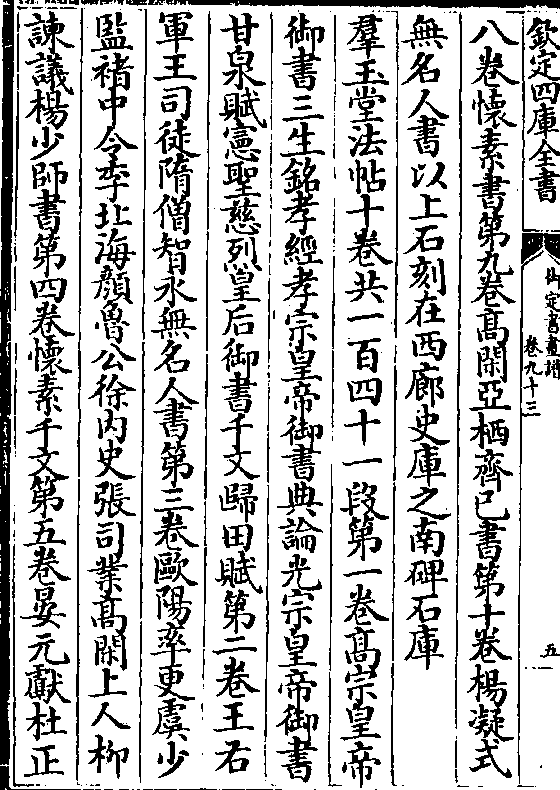 欽定四庫全書
御定書畫譜
卷九十三
五
八卷懷素書第九卷髙閑亞栖齊已書第十卷楊凝式
無名人書以上石刻在西廊史庫之南碑石庫
羣玉堂法帖十卷共一百四十一段第一卷髙宗皇帝
御書三生銘孝經孝宗皇帝御書典論光宗皇帝御書
甘泉賦憲聖慈烈皇后御書千文歸田賦第二卷王右
軍王司徒隋僧智永無名人書第三卷歐陽率更虞少
監褚中令李北海顔魯公徐内史張司業髙閑上人柳
諫議楊少師書第四卷懷素千文第五卷晏元獻杜正